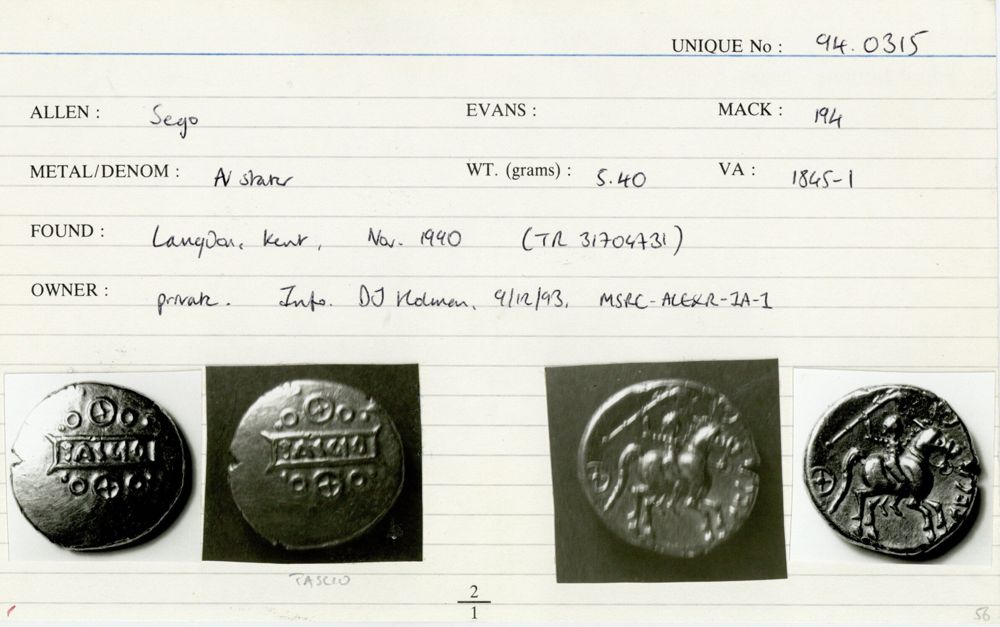 UNIQUE No : 94.0315
ALLEN : Sego EVANS : MACK : 194
METAL/DENOM : AV stater WT. (grams) : 5.40 VA : 1845-1
FOUND : Langdon, Kent, Nov. 1990 (TR 31704731)
OWNER : private. Info. DJ Holman, 9/12/93, MSRC-ALEXR-IA-1
TASCIO
TASCIO
TASCIO
2
1
56